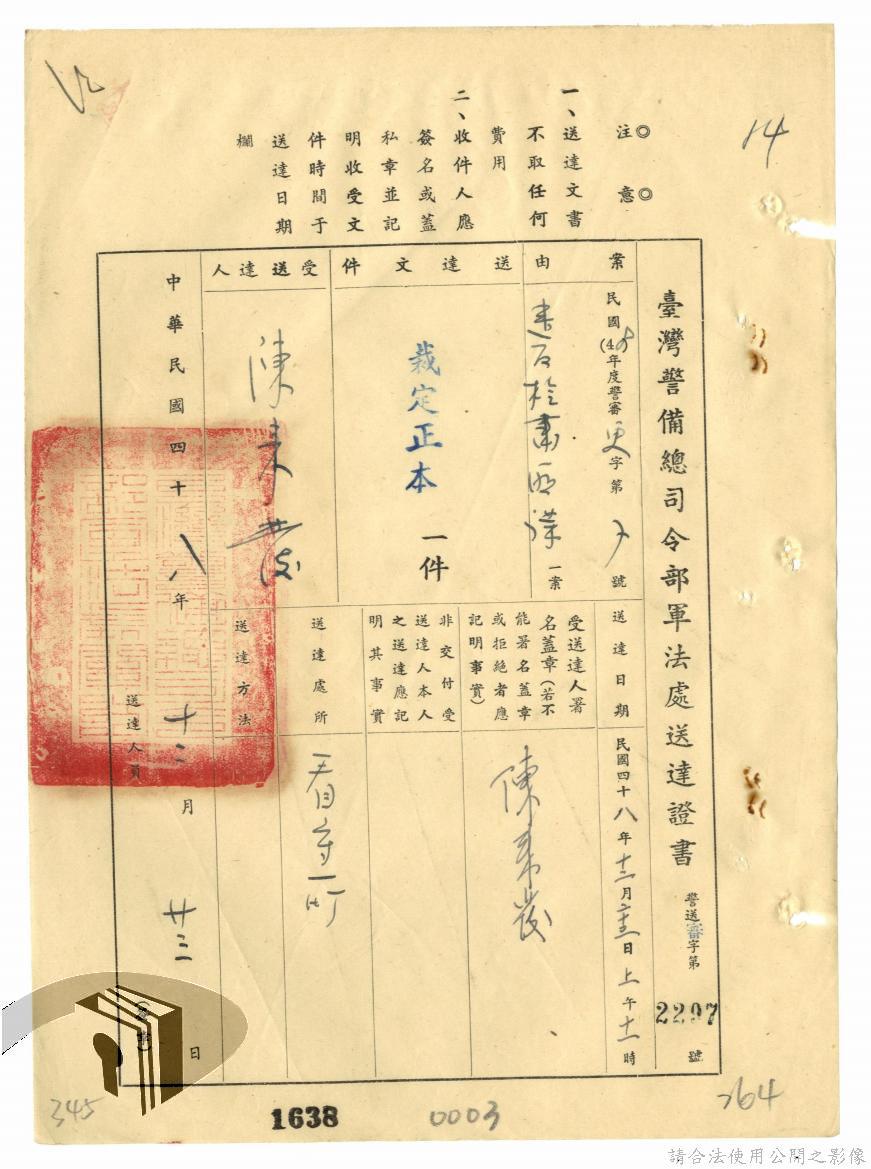 14
◎注意◎
一、送達文書
不取任何
費用
二、收件人應
簽名或蓋
私章並記
明收受文
件時間于
送達日期
欄
臺灣警備總司令部軍法處送達證書
警送審字第2297號
案由
民國(48)年度警審更字第 號
一案
送達文件
裁定正本
一件
受送達人
陳 茂
送達日期
民國四十八年十二月 日上午十一時
受送達人署
名蓋章(若不
能署名蓋章
或拒絕者應
記明事實)
陳秉茂
非交付受
送達人本人
之送達應記
明其事實
送達處所
看守所
送達方法
中華民國四十八年十二月廿三日
送達人員
345
1638
0003
264
請合法使用公開之影像